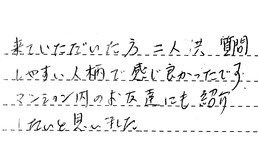 来ていただいた方 二人共 質問
しやすい人柄で感じ良かったです
マンション内のお友達にも紹介
したいと思いました